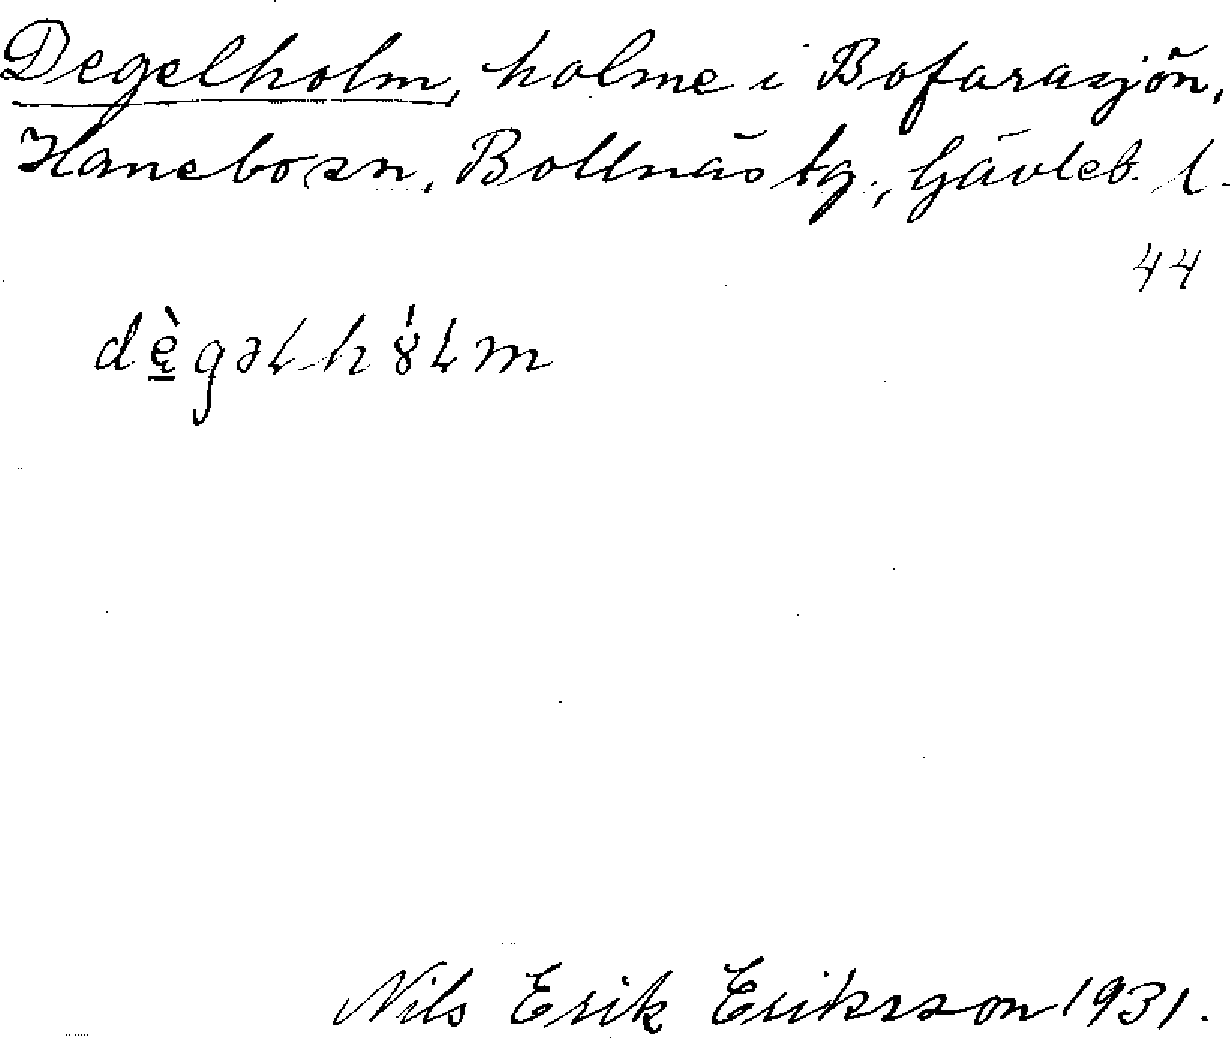 Degelholm, holme i Bofarasjön,
Hanebo sn, Bollnäs tg., Gävleb. l.
44
dè̱gəɫhȣ́ɫm
Nils Erik Eriksson 1931.